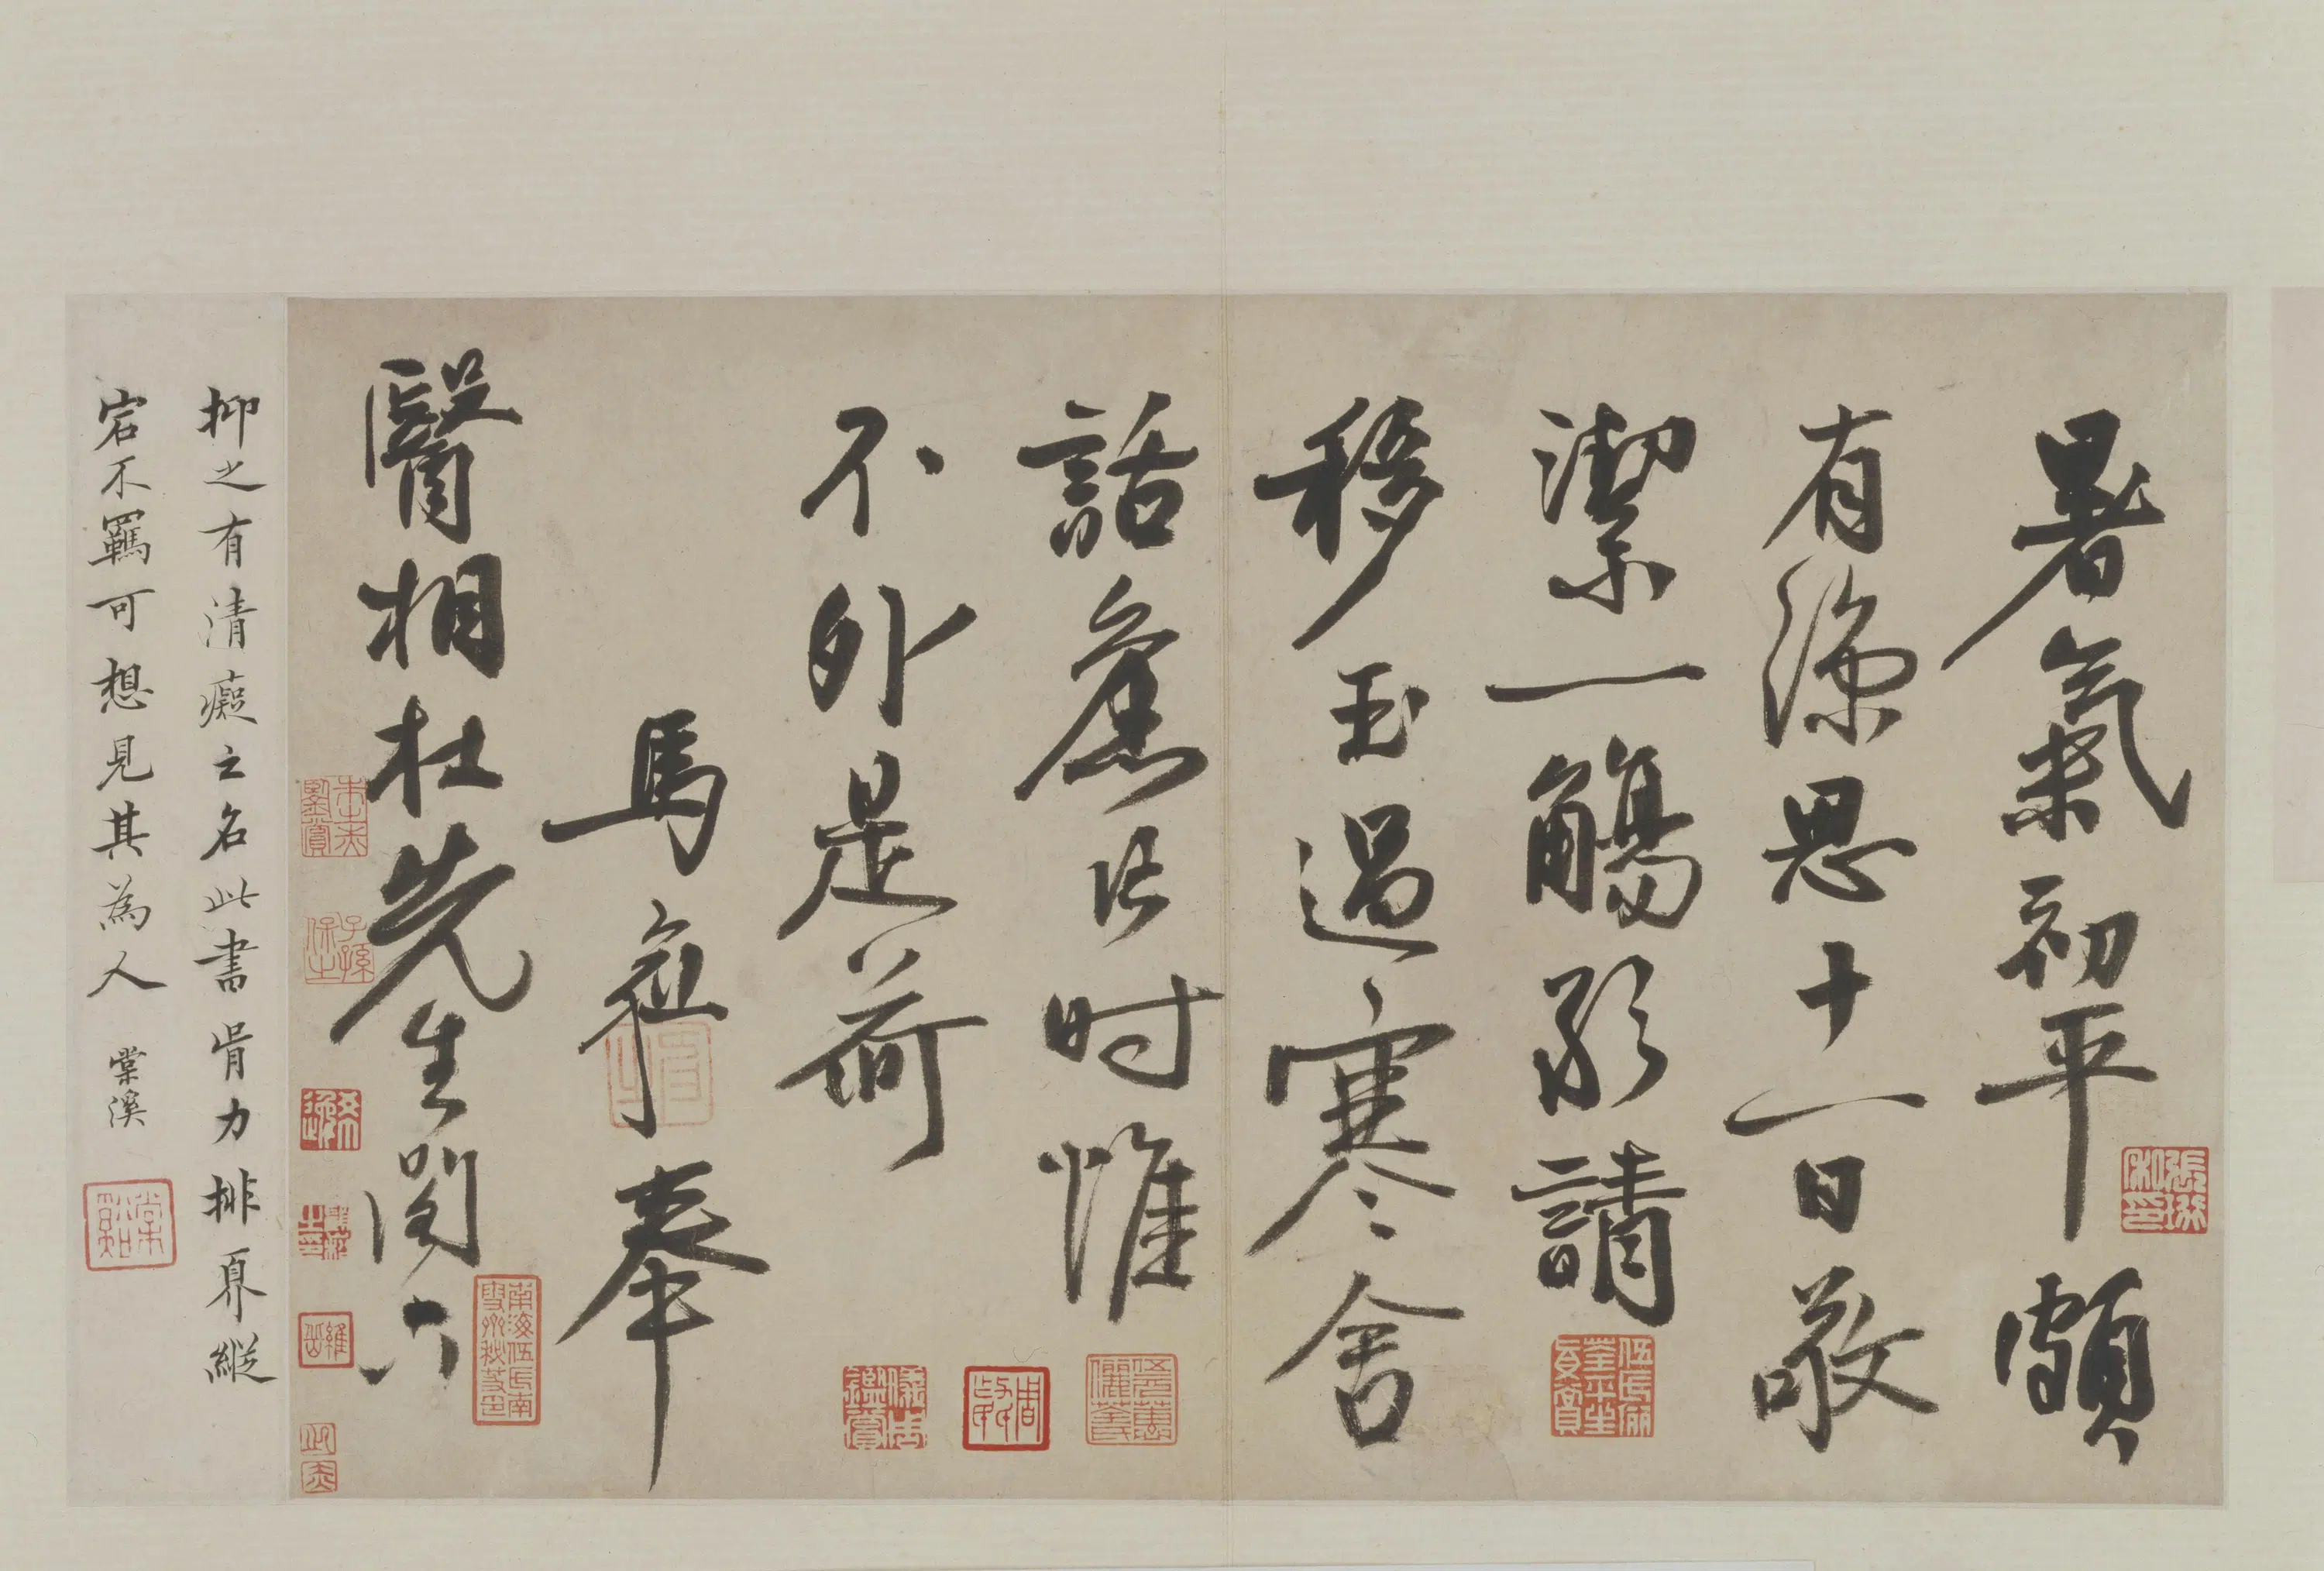 暑氣初平頗
有涼思十一日敬
潔一觴敢請
移玉過寒舍
話舊
時惟
不外是荷
馬愈奉
醫相杜先生閣下
抑之有清癡之名此書骨力排奡縱
宕不羈可想見其為人 棠溪